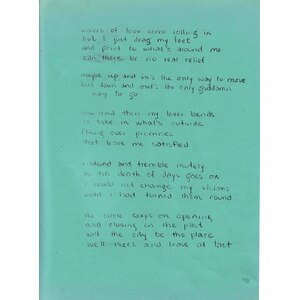 waves of love come rolling in
but i just drag my feet
and point to what's around me
can there be no real relief
maybe up and in's the only way to move
but down and out's the only goddamn
way to go
now and then my lover bends
to take in what's outside
flung over promises
that leave me satisfied
i stand and tremble mutely
as this death of days goes on
i could not change my visions
until i had turned them round
the circle keeps on opening
and closing on the past
will the city be the place
we'll meet and leave at last